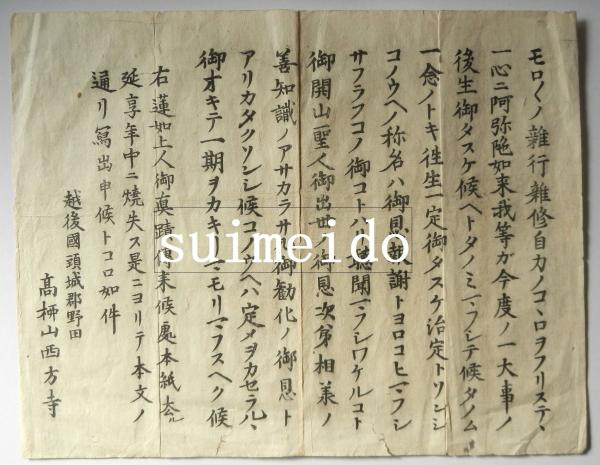 モロ〳〵ノ雜行雜修自力ノコヽロヲフリステヽ
一心ニ阿弥陀如来我等カ今度ノ一大事ノ
後生御タスケ候ヘトタノミマフシテ候タノム
一念ノトキ往生一定御タスケ治定トソンシ
コノウヘノ称名ハ御恩報謝トヨロコヒマフシ
サフラフコノ御コトハリ聴聞マフシワケルコト
御開山聖人御出世ノ御恩次第相承ノ
善知識ノアサカラサル御勧化ノ御恩ト
アリカタクソンシ候コノウヘハ定メヲカセラルヽ
御オキテ一期ヲカキリマモリマフスヘク候
右蓮如上人御真蹟傳来候處本紙
延享年中ニ焼失ス是ニヨリテ本文ノ
通リ寫出申候トコロ如件
越後國頭城郡野田
高柹山西方寺
suimeido